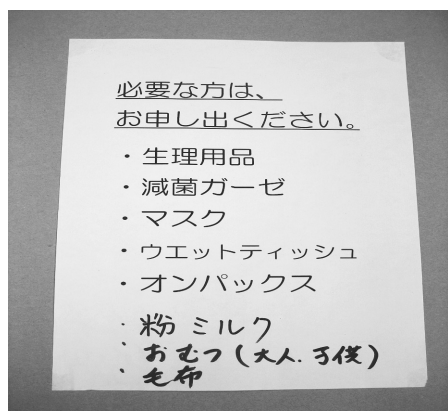 必要な方は、
お申し出ください。
・生理用品
・減菌ガーゼ
・マスク
・ウエットティッシュ
・オンパックス
・粉ミルク
・おむつ(大人.子供)
・毛布